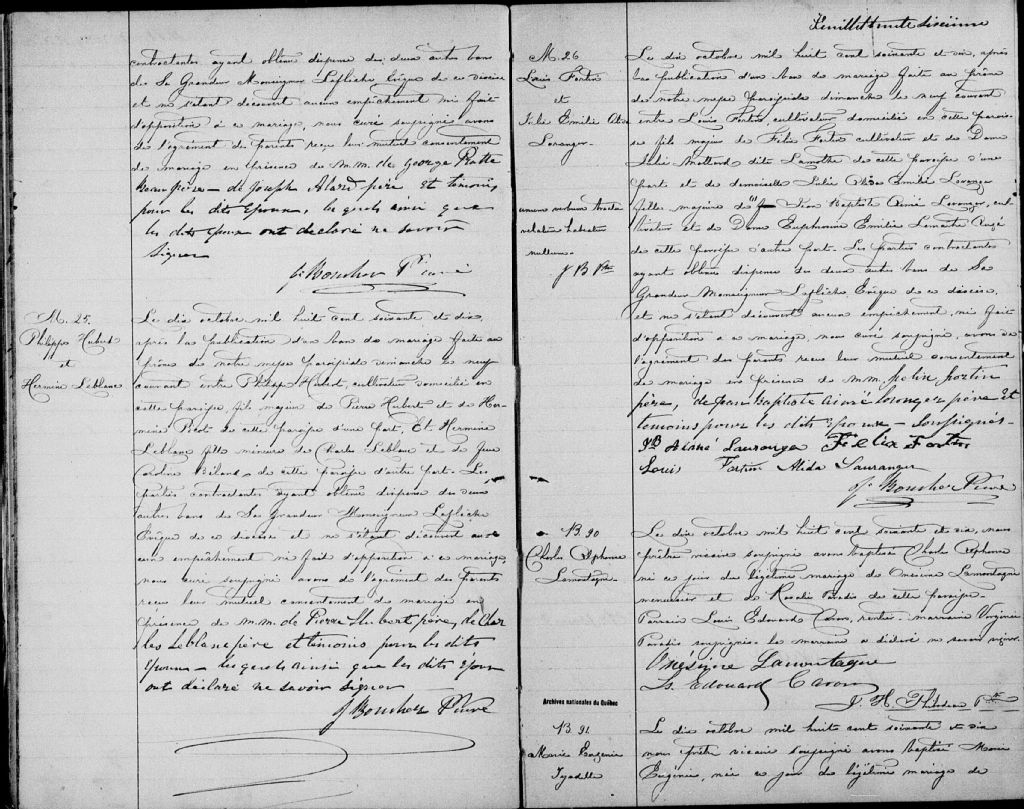 contractantes ayant obtenu dispense des deux autres bans
de Sa Grandeur Monseigneur Laflèche Evêque de ce diocèse
et ne s'étant découvert aucun empêchement ni fait
d'opposition à ce mariage, nous curé soussigné avons
de l'agrément des parents reçu leur mutuel consentement
de mariage en présence de m.m. de george
Beau père - de Joseph Alard père et temoins
pour les dits Epoux, les quels ainsi que
les dits Epoux ont déclaré ne savoir
signer
J. Boucher Ptre curé
M. 25.
Philippe Hubert
et
Hermine Leblanc
Le dix octobre mil huit cent soixante et dix,
après la publication d'un ban de mariage faite au
prône de notre messe paroissiale dimanche le neuf
courant entre Philippe Hubert, cultivateur domicilié en
cette paroisse, fils majeur de Pierre Hubert et de Her-
mine de cette paroisse d'une part, Et Hermine
Leblanc fille mineure de Charles Leblanc et de feue
Caroline de cette paroisse d'autre part. Les
parties contractantes ayant obtenu dispense des deux
autres bans de Sa Grandeur Monseigneur Laflèche
Evêque de ce diocèse et ne s'étant découvert au-
cun empêchement ni fait d'opposition à ce mariage,
nous curé soussigné avons de l'agrément des parents
reçu leur mutuel consentement de mariage en
présence de m.m. de Pierre Hubert père, de Char
les Leblanc père et temoins pour les dits
Epoux - les quels ainsi que les dits Epoux
ont déclaré ne savoir signer
J. Boucher Ptre curé
Feuillet trente sixième
M. 26
Louis Fortin
et
Emilie
Loranger
nullum.
J B Ptre
Le dix octobre mil huit cent soixante et dix, après
la publication d'un ban de mariage faite au prône
de notre messe paroissiale dimanche le neuf courant
entre Louis Fortin, cultivateur, domicilié en cette parois-
se fils majeur de Félix Fortin cultivateur et de Dame
Julie dite Lamothe de cette paroisse d'une
part et de demoiselle Julie Emilie Loranger
fille majeure de Jean Baptiste Aimé Loranger, cul-
tivateur et de Dame Euphrosine Emilie Lemaitre Augé
de cette paroisse d'autre part. Les parties contractantes
ayant obtenu dispense des deux autres bans de Sa
Grandeur Monseigneur Laflèche Evêque de ce diocèse,
et ne s'étant découvert aucun empêchement, ni fait
d'opposition à ce mariage, nous curé soussigné, avons de
l'agrément des parents reçu leur mutuel consentement
de mariage en présence de m.m. félix fortin
père, de jean Baptiste aimé loranger père et
temoins pour les dits Epoux - Soussignés -
JB Aimé Lauranger Félix Fortin
Louis Fortin Alida Lauranger
J. Boucher Ptre curé
B. 90
Charles Alphonse
Lamontagne
Le dix octobre mil huit cent soixante et dix, nous
prêtre vicaire soussigné avons baptisé Charles Alphonse
né ce jour du légitime mariage de Onésime Lamontagne
menuisier et de Rosalie Paradis de cette paroisse.
Parrain Louis Edouard Caron, rentier - marraine Virginie
Paradis soussignés - la marraine a déclaré ne savoir signer.
Onésime Lamontagne
Ls. Edouard Caron
J. H. Ptre
Archives nationales du Québec
B. 91
Marie Eugénie
Le dix octobre mil huit cent soixante et dix
nous prêtre vicaire soussigné avons baptisé Marie
Eugénie, née ce jour du légitime mariage de